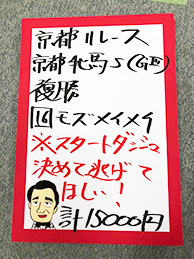 京都11レース
京都牝馬S(GⅢ)
複勝
16 モズメイメイ
※スタートダッシュ
決めて逃げて
ほしい!
計15000円